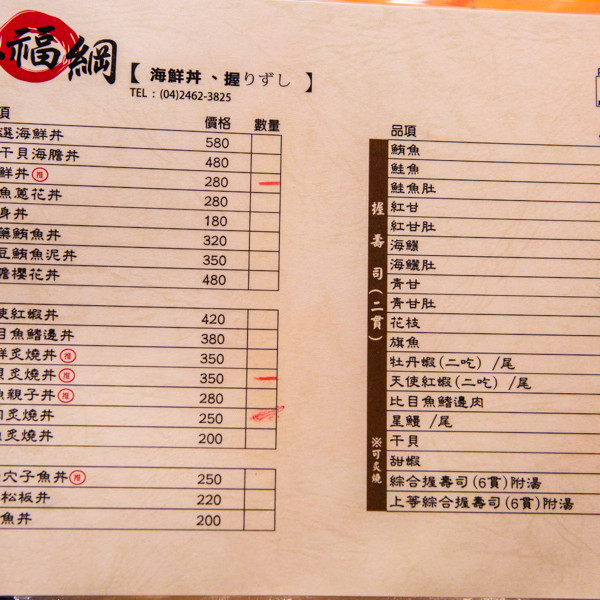 福綱
【 海鮮丼、握りずし 】
TEL : (04)2462-3825
項 價格 數量
選海鮮丼 580
干貝海膽丼 480
鮮丼 推 280
魚蔥花丼 280
身丼 180
藥鮪魚丼 320
豆鮪魚泥丼 350
膽櫻花丼 480
使紅蝦丼 420
目魚鰭邊丼 380
鮮炙燒丼 推 350
貝炙燒丼 推 350
魚親子丼 推 280
炙燒丼 250
炙燒丼 200
穴子魚丼 推 250
松板丼 220
魚丼 200
品項
握壽司(二貫)
※可炙燒
鮪魚
鮭魚
鮭魚肚
紅甘
紅甘肚
海鱺
海鱺肚
青甘
青甘肚
花枝
旗魚
牡丹蝦(二吃) /尾
天使紅蝦(二吃) /尾
比目魚鰭邊肉
星鰻 /尾
干貝
甜蝦
綜合握壽司(6貫)附湯
上等綜合握壽司(6貫)附湯